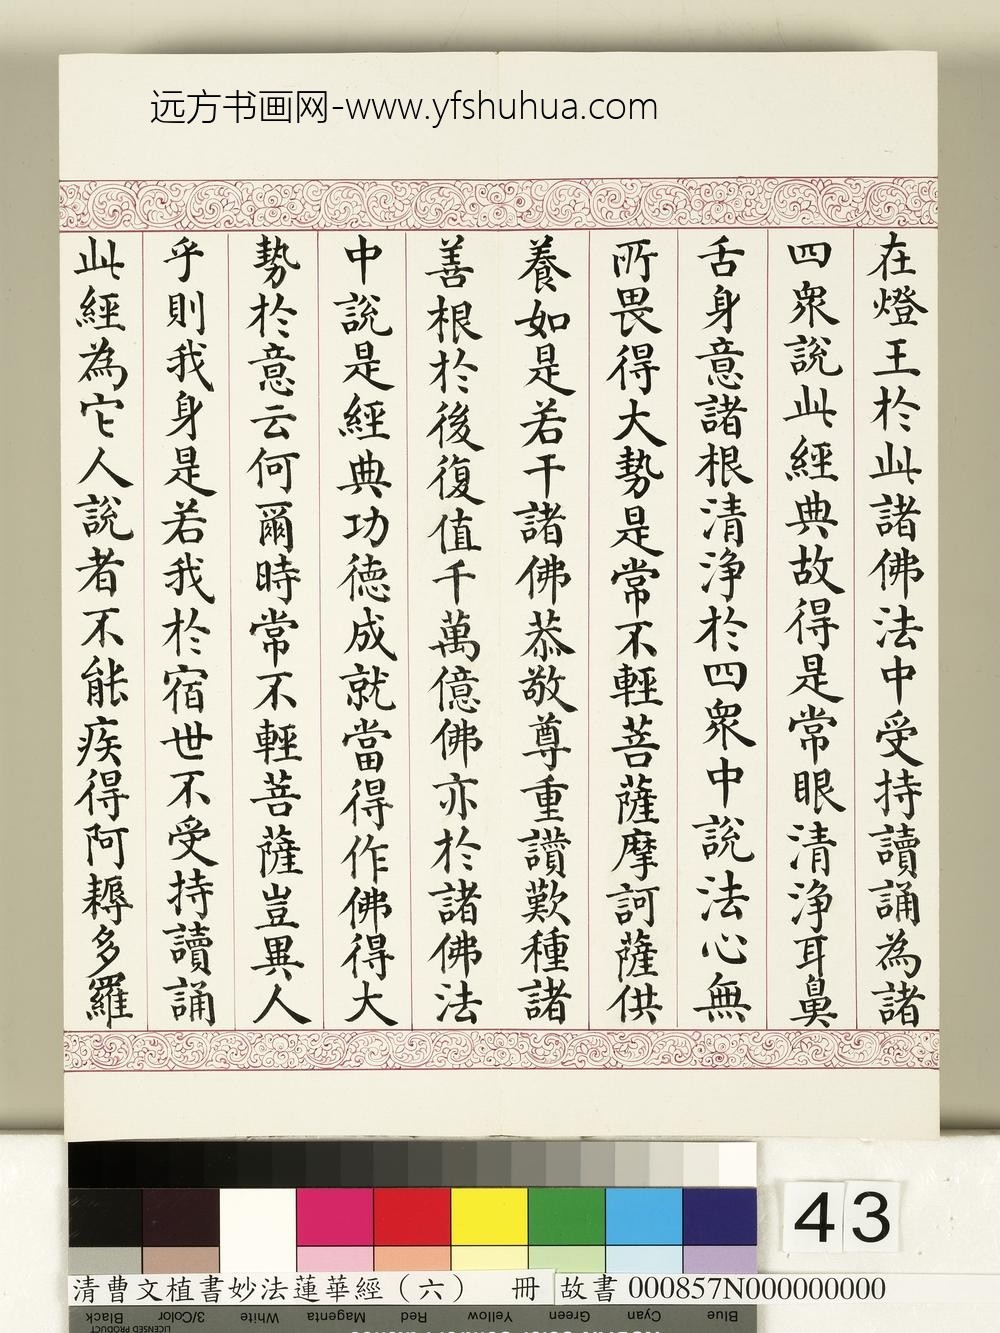 远方书画网-www.yfshuhua.com
在燈王於此諸佛法中受持讀誦為諸
四眾說此經典故得是常眼清淨耳鼻
舌身意諸根清淨於四眾中說法心無
所畏得大勢是常不輕菩薩摩訶薩供
養如是若干諸佛恭敬尊重讚歎種諸
善根於後復值千萬億佛亦於諸佛法
中說是經典功德成就當得作佛得大
勢於意云何爾時常不輕菩薩豈異人
乎則我身是若我於宿世不受持讀誦
此經為它人說者不能疾得阿耨多羅
43
清曹文植書妙法蓮華經（六） 冊 故書 000857N000000000
Black 3/Color White Magenta Red Yellow Green Cyan Blue
LICENSED PRODUCT